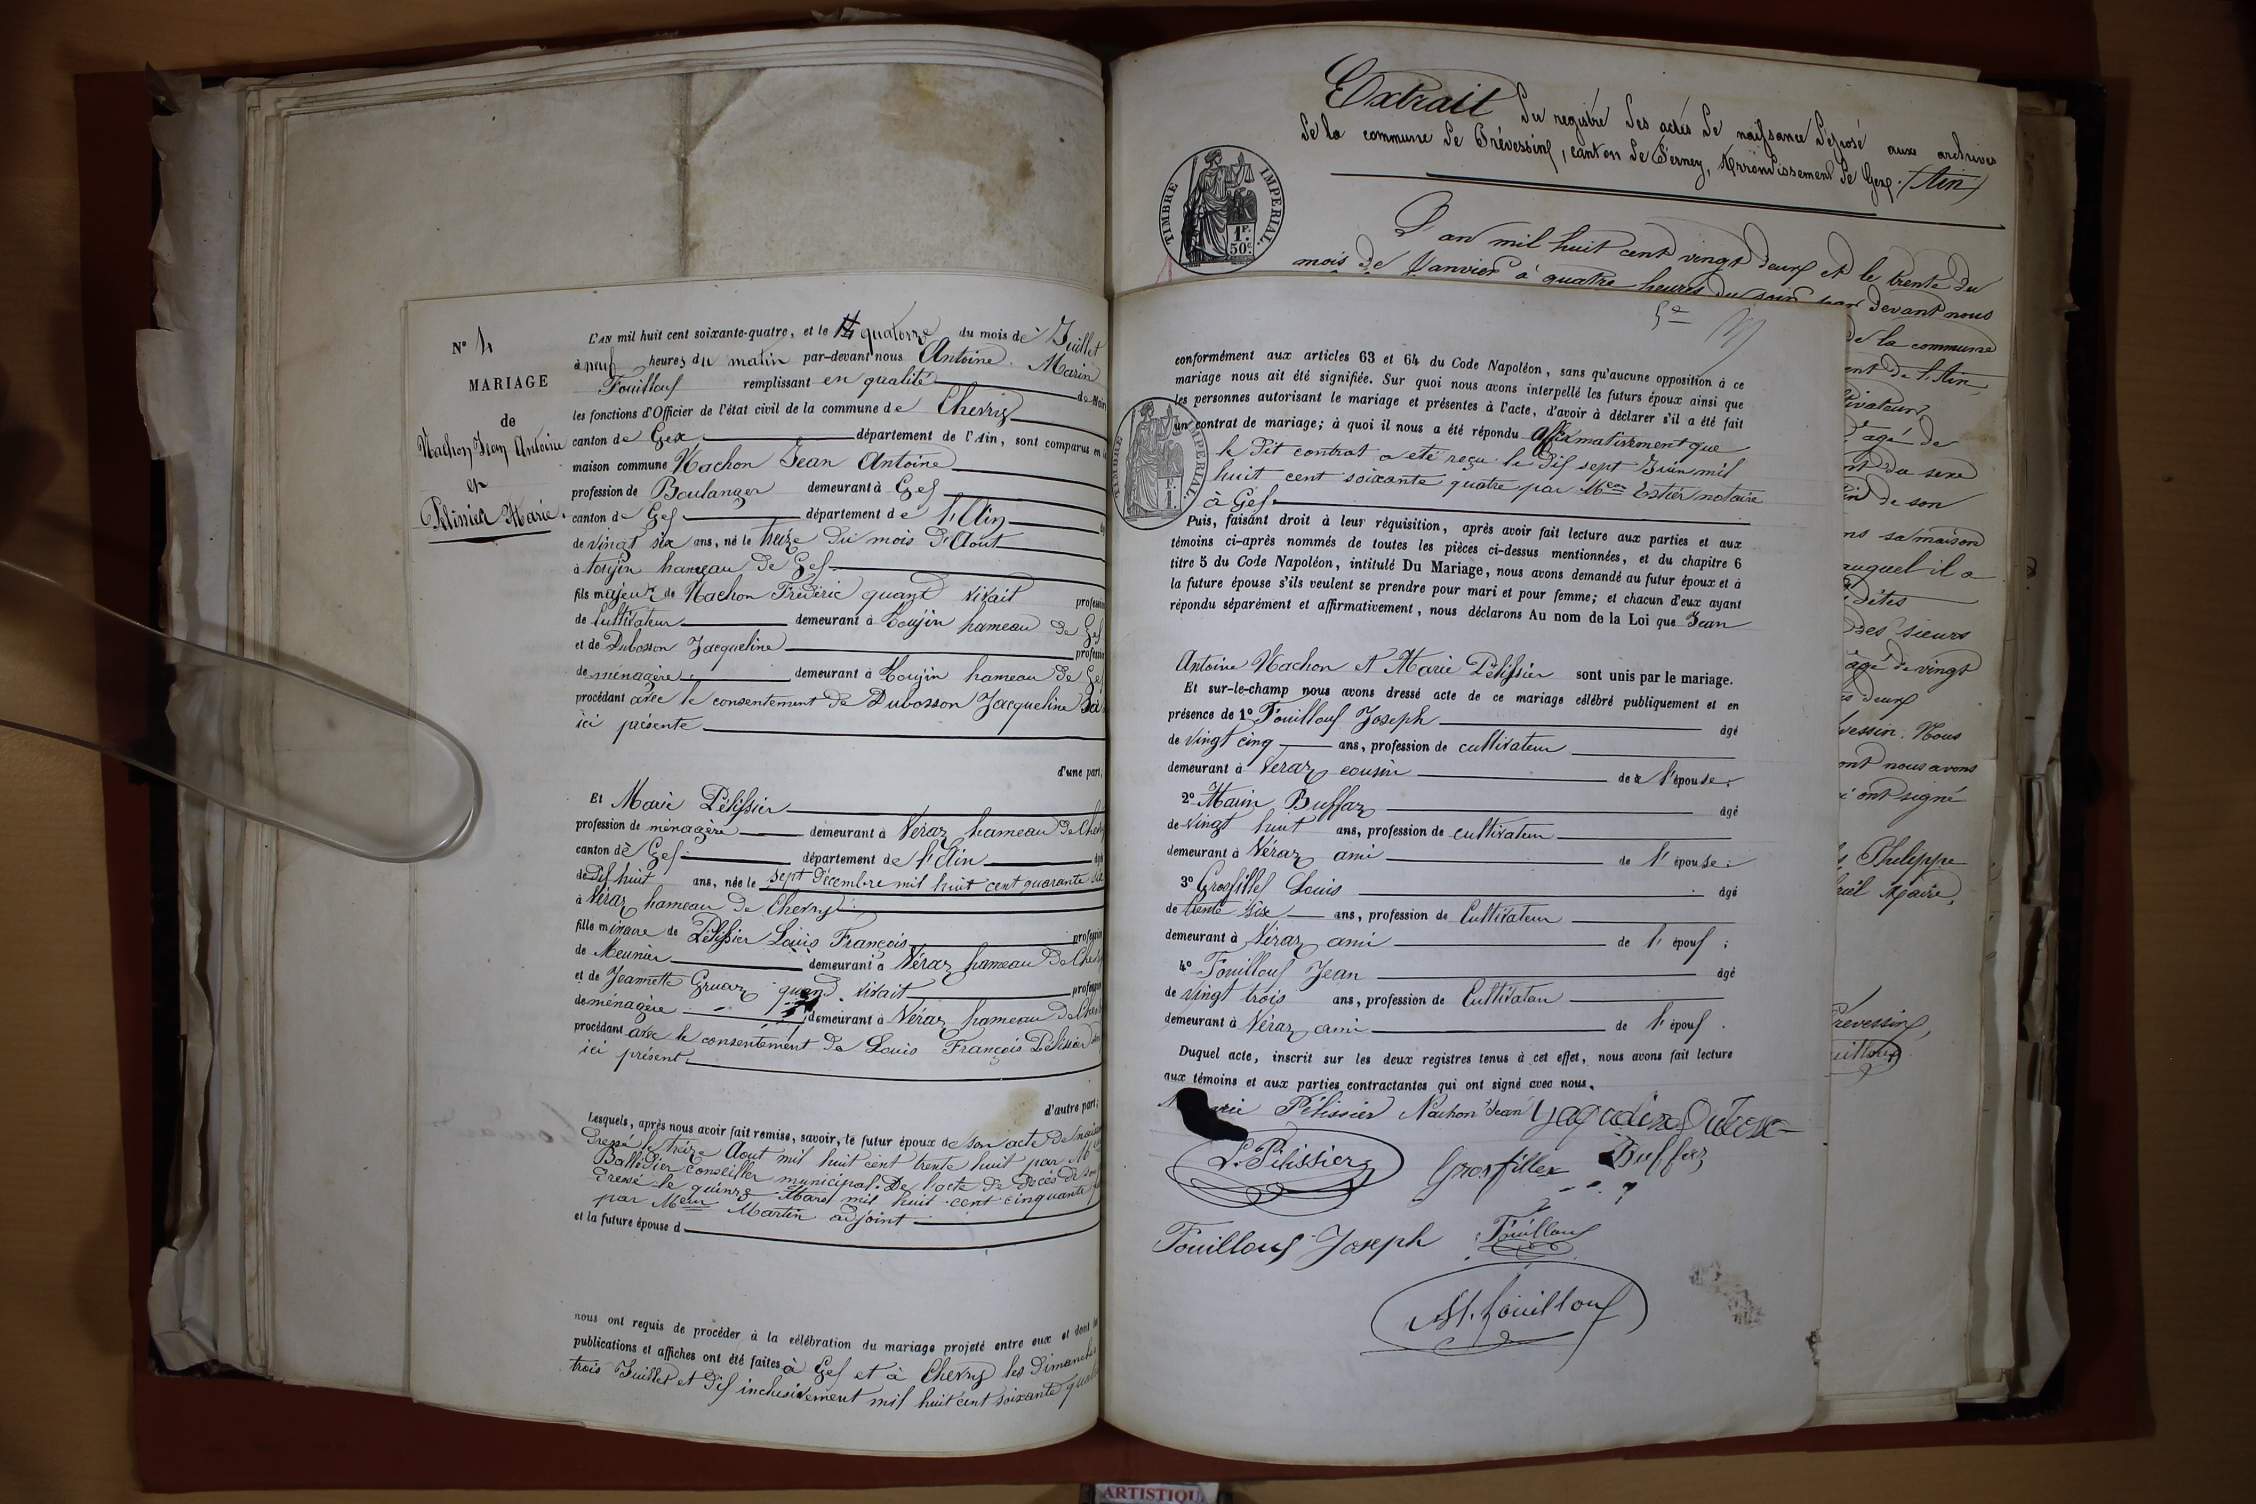 N° 4
MARIAGE
de
Nachon Jean Antoine
et
Pélissier Marie.
L'AN mil huit cent soixante-quatre, et le quatorze du mois de Juillet
à neuf heures du matin par-devant nous Antoine Marin
Fouilloux remplissant en qualité de Maire
les fonctions d'Officier de l'état civil de la commune de Chevry
canton de Gex département de l'Ain, sont comparus en la
maison commune Nachon Jean Antoine
profession de Boulanger demeurant à Gex
canton de Gex département de l'Ain
de vingt six ans, né le treize du mois d'Aout
à Toujin hameau de Gex
fils majeur de Nachon Frédéric quand vivait profession
de Cultivateur demeurant à Toujin hameau de Gex
et de Dubosson Jacqueline profession
de ménagère demeurant à Toujin hameau de Gex
procédant avec le consentement de Dubosson Jacqueline
ici présente
d'une part;
Et Marie Pélissier
profession de ménagère demeurant à Véraz hameau de Chevry
canton de Gex département de l'Ain âgée
de dix huit ans, née le sept décembre mil huit cent quarante
à Véraz hameau de Chevry
fille mineure de Pélissier Louis François profession
de Meunier demeurant à Véraz hameau de Chevry
et de Jeannette Gruaz quand vivait profession
de ménagère demeurant à Véraz hameau de
procédant avec le consentement de Louis François Pélissier
ici présent
d'autre part;
Lesquels, après nous avoir fait remise, savoir, le futur époux de son acte de
dressé le treize Aout mil huit cent trente huit par
Ballidier conseiller municipal. De l'acte de décès de
dressé le quinze Mars mil huit cent cinquante
par Meur Martin adjoint
et la future épouse d
nous ont requis de procéder à la célébration du mariage projeté entre eux et dont les
publications et affiches ont été faites à Gex et à Chevry les Dimanches
trois Juillet et dix inclusivement mil huit cent soixante quatre
Extrait du registre des actes de naissance déposé aux archives
de la commune de Prévessin, canton de Ferney, Arrondissement de Gex. (Ain)
TIMBRE IMPERIAL.
1F.
50c.
L'an mil huit cent vingt deux et le trente du
mois de Janvier à quatre heures du soir par devant nous
de la commune
de l'Ain,
âgé de
du sexe
de son
sa maison
auquel il a
des sieurs
âgé de vingt
deux
Nous
nous avons
ont signé
Philippe
Maire,
Prevessin,
conformément aux articles 63 et 64 du Code Napoléon, sans qu'aucune opposition à ce
mariage nous ait été signifiée. Sur quoi nous avons interpellé les futurs époux ainsi que
les personnes autorisant le mariage et présentes à l'acte, d'avoir à déclarer s'il a été fait
un contrat de mariage; à quoi il nous a été répondu affirmativement que
le dit contrat a eté reçu le dix sept Juin mil
huit cent soixante quatre par Estier notaire
à Gex
Puis, faisant droit à leur réquisition, après avoir fait lecture aux parties et aux
témoins ci-après nommés de toutes les pièces ci-dessus mentionnées, et du chapitre 6
titre 5 du Code Napoléon, intitulé Du Mariage, nous avons demandé au futur époux et à
la future épouse s'ils veulent se prendre pour mari et pour femme; et chacun d'eux ayant
répondu séparément et affirmativement, nous déclarons Au nom de la Loi que Jean
Antoine Nachon et Marie Pélissier sont unis par le mariage.
Et sur-le-champ nous avons dressé acte de ce mariage célébré publiquement et en
présence de 1° Fouilloux Joseph âgé
de vingt cinq ans, profession de cultivateur
demeurant à Veraz cousin de l'épouse;
2° Marin Buffaz âgé
de vingt huit ans, profession de cultivateur
demeurant à Véraz ami de l'épouse;
3° Grosfillex Louis âgé
de trente six ans, profession de Cultivateur
demeurant à Véraz ami de l'époux;
4° Fouilloux Jean âgé
de vingt trois ans, profession de Cultivateur
demeurant à Véraz ami de l'époux.
Duquel acte, inscrit sur les deux registres tenus à cet effet, nous avons fait lecture
aux témoins et aux parties contractantes qui ont signé avec nous.
Pélissier Nachon Jean
L. Pélissier Grosfillex Buffaz
Fouilloux Joseph Fouilloux
Fouilloux
ARTISTIQU